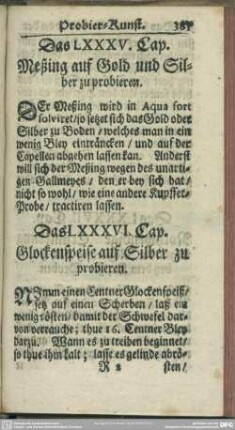 Probier-Kunst. 387
Das LXXXV. Cap.
Meßing auf Gold und Sil-
ber zu probieren.
DEr Meßing wird in Aqua fort
solviret/ so setzet sich das Gold oder
Silber zu Boden / welches man in ein
wenig Bley eintråncken / und auf der
Capellen abgehen lassen kan. Anderst
will sich der Meßing wegen des unarti-
gen Gallmeyes / den er bey sich hat/
nicht so wohl / wie eine andere Kupffer-
Probe / tractiren lassen.
Das LXXXVI. Cap.
Glockenspeise auf Silber zu
probieren.
NImm einen Centner Glockenspeiß/
setz auf einen Scherben / laß ein
wenig rösten/ damit der Schwefel dar-
von verrauche; thue 16. Centner Bley
darzu. Wann es zu treiben beginnet/
so thue ihm kalt; lasse es gelinde abrö-
R 2 sten/